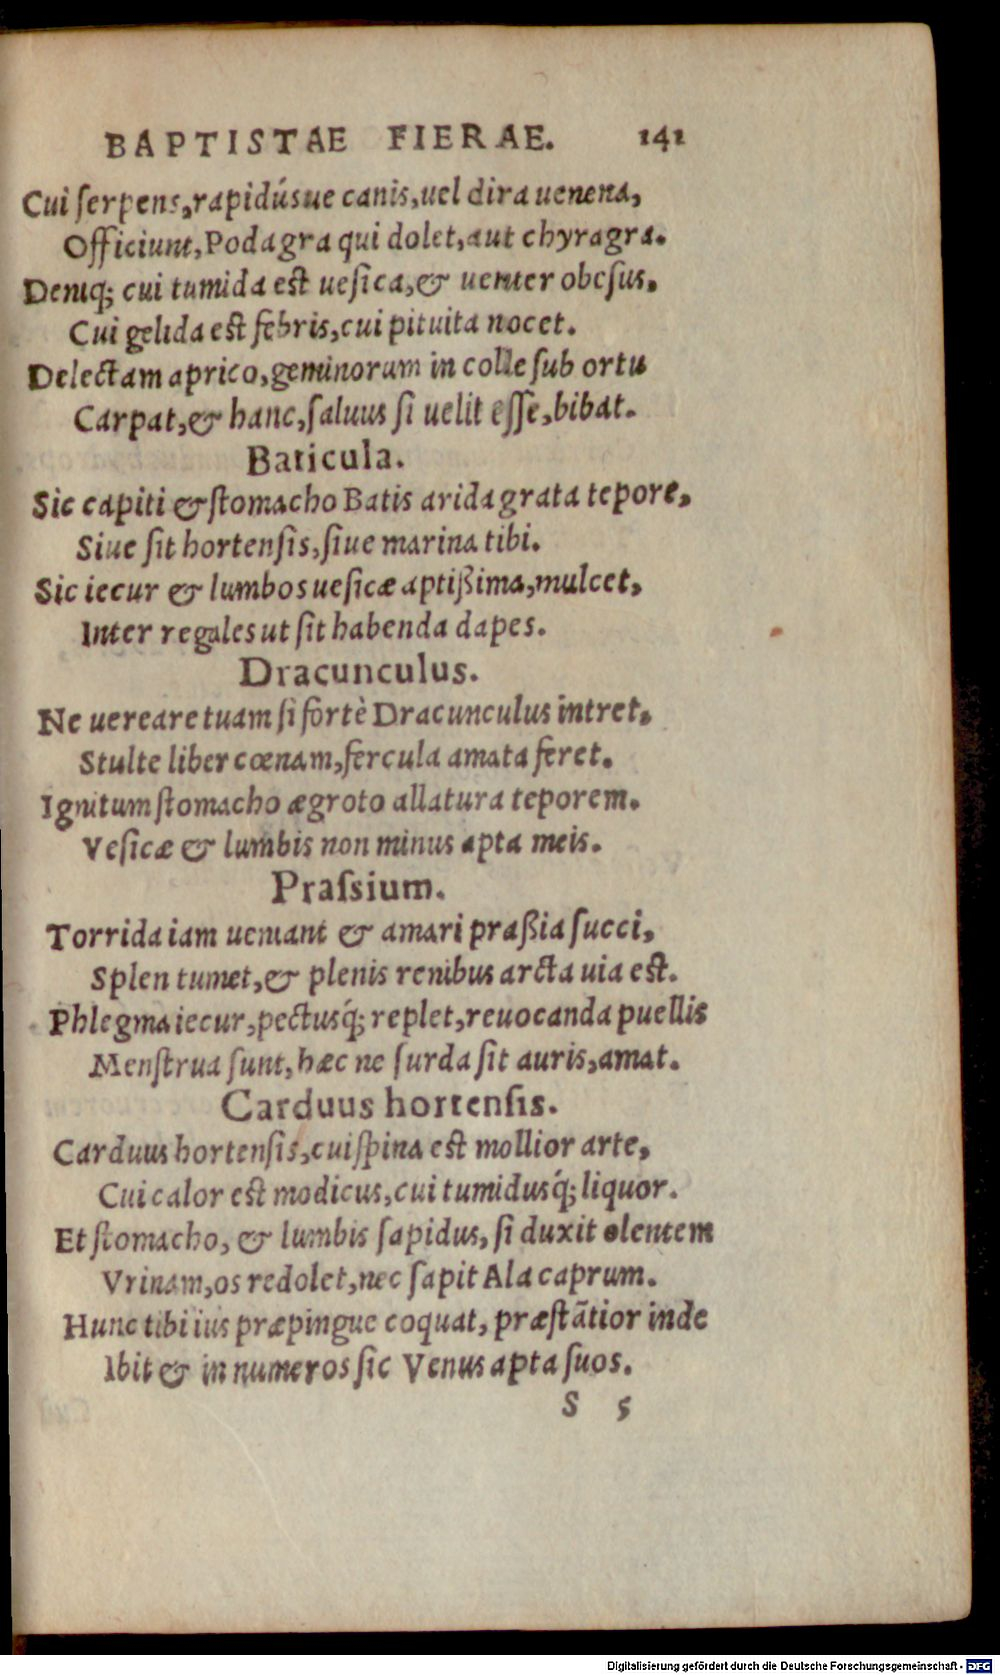 BAPTISTAE FIERAE. 141
Cui ſerpens, rapidúsue canis, uel dira uenena,
Officiunt, Podagra qui dolet, aut chyragra.
Deniq; cui tumida est ueſica, & uenter obeſus.
Cui gelida est febris, cui pituita nocet.
Delectam aprico, geminorum in colle ſub ortu
Carpat, & hanc, ſaluus ſi uelit eſſe, bibat.
Baticula.
Sic capiti & ſtomacho Batis arida grata tepore,
Siue ſit hortenſis, ſiue marina tibi.
Sic iecur & lumbos ueſicæ aptißima, mulcet,
Inter regales ut ſit habenda dapes.
Dracunculus.
Ne uereare tuam ſi fortè Dracunculus intret,
Stulte liber cœnam, fercula amata feret.
Ignitum ſtomacho ægroto allatura teporem.
Veſicæ & lumbis non minus apta meis.
Praſsium.
Torrida iam ueniant & amari praßia ſucci,
Splen tumet, & plenis renibus arcta uia est.
Phlegma iecur, pectusq́; replet, reuocanda puellis
Menſtrua ſunt, hæc ne ſurda ſit auris, amat.
Carduus hortenſis.
Carduus hortenſis, cui ſpina est mollior arte,
Cui calor est modicus, cui tumidusq́; liquor.
Et ſtomacho, & lumbis ſapidus, ſi duxit olentem
Vrinam, os redolet, nec ſapit Ala caprum.
Hunc tibi ius præpingue coquat, præſtãtior inde
Ibit & in numeros ſic Venus apta ſuos.
S 5
Digitalisierung gefördert durch die Deutsche Forschungsgemeinschaft - DFG